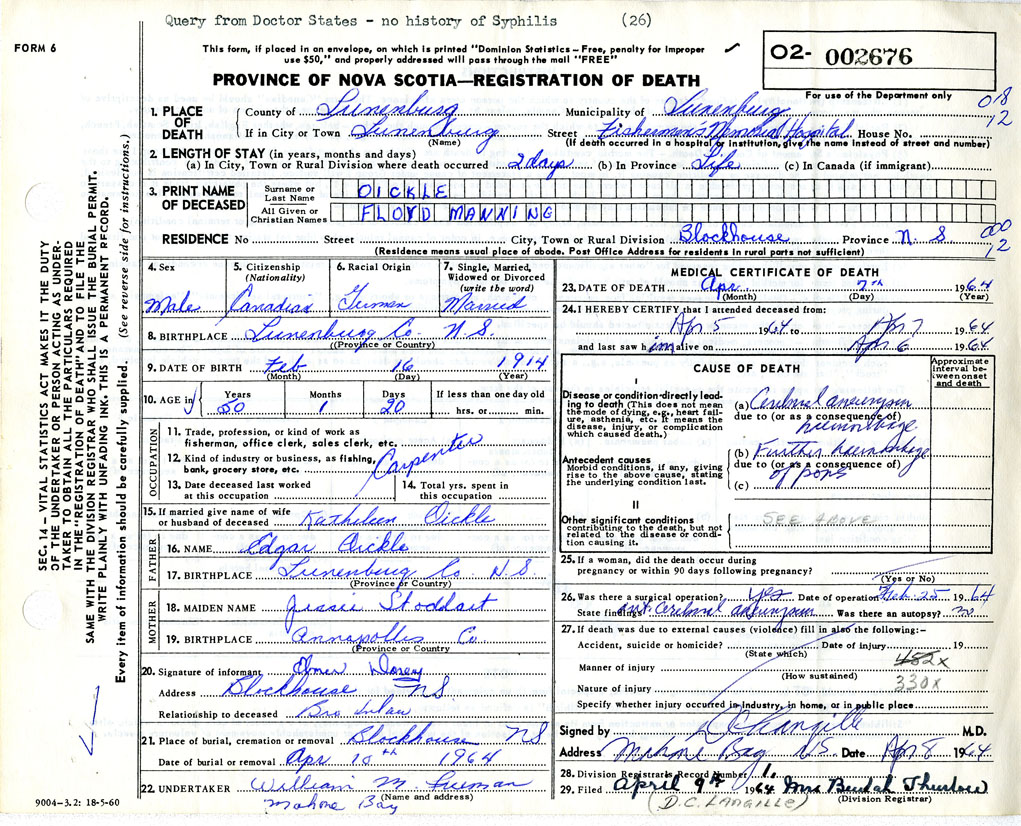 Query from Doctor States - no history of Syphilis (26)
FORM 6
This form, if placed in an envelope, on which is printed "Dominion Statistics – Free, penalty for improper
use $50," and properly addressed will pass through the mail "FREE"
O2- 002676
PROVINCE OF NOVA SCOTIA—REGISTRATION OF DEATH
For use of the Department only
018
12
1. PLACE OF DEATH
County of Lunenburg Municipality of Lunenburg
If in City or Town Lunenburg Street Fishermen's Memorial Hospital House No.
(Name) (If death occurred in a hospital or institution, give the name instead of street and number)
2. LENGTH OF STAY (in years, months and days)
(a) In City, Town or Rural Division where death occurred 2 days (b) In Province Life (c) In Canada (if immigrant)
3. PRINT NAME OF DECEASED
Surname or Last Name OICKLE
All Given or Christian Names FLOYD MANNING
000
12
RESIDENCE No Street City, Town or Rural Division Blockhouse Province N. S
(Residence means usual place of abode. Post Office Address for residents in rural parts not sufficient)
4. Sex Male
5. Citizenship (Nationality) Canadian
6. Racial Origin German
7. Single, Married, Widowed or Divorced (write the word) Married
8. BIRTHPLACE Lunenburg Co. N.S.
(Province or Country)
9. DATE OF BIRTH Feb 16 1914
(Month) (Day) (Year)
10. AGE in Years Months Days If less than one day old
50 1 20 hrs. or min.
OCCUPATION
11. Trade, profession, or kind of work as
fisherman, office clerk, sales clerk, etc.
Carpenter
12. Kind of industry or business, as fishing,
bank, grocery store, etc.
13. Date deceased last worked
at this occupation
14. Total yrs. spent in
this occupation
15. If married give name of wife
or husband of deceased Kathileen Oickle
FATHER
16. NAME Edgar Oickle
17. BIRTHPLACE Lunenburg Co N.S.
(Province or Country)
MOTHER
18. MAIDEN NAME Jessie Stoddart
19. BIRTHPLACE Annapollis Co
(Province or Country)
20. Signature of informant
Address Blockhouse NS
Relationship to deceased Bro inlaw
21. Place of burial, cremation or removal Blockhouse NS
Date of burial or removal Apr 10th 1964
22. UNDERTAKER William M.
Mahone Bay (Name and address)
MEDICAL CERTIFICATE OF DEATH
23. DATE OF DEATH Apr 7th 1964
(Month) (Day) (Year)
24. I HEREBY CERTIFY that I attended deceased from:
Apr 5 1964 to Apr 7 1964
and last saw him alive on Apr 6 1964
CAUSE OF DEATH
Approximate interval between onset and death
I
Disease or condition directly leading to death (This does not mean the mode of dying, e.g., heart failure, asthenia, etc. It means the disease, injury, or complication which caused death.)
(a) Cerebral aneurysm
due to (or as a consequence of)
haemorrhage
Antecedent causes
Morbid conditions, if any, giving rise to the above cause, stating the underlying condition last.
(b) Further haemorrhage
due to (or as a consequence of)
(c) of pons
II
Other significant conditions
contributing to the death, but not related to the disease or condition causing it.
SEE ABOVE
25. If a woman, did the death occur during
pregnancy or within 90 days following pregnancy?
(Yes or No)
26. Was there a surgical operation? Yes Date of operation Feb. 25 1964
State findings ant. Cerebral aneurysm Was there an autopsy? no
27. If death was due to external causes (violence) fill in also the following:–
Accident, suicide or homicide? Date of injury 19
(State which)
452x
Manner of injury
(How sustained)
330x
Nature of injury
Specify whether injury occurred in Industry, in home, or in public place
Signed by D C Langille M.D.
Address Mahone Bay N.S. Date Apr 8 1964
28. Division Registrar's Record Number 1.
29. Filed April 9th 1964 Mrs Beulah Thurlow
(D.C. LANGILLE) (Division Registrar)
SEC. 14 – VITAL STATISTICS ACT MAKES IT THE DUTY
OF THE UNDERTAKER OR PERSON ACTING AS UNDER-
TAKER TO OBTAIN ALL THE PARTICULARS REQUIRED
IN THE "REGISTRATION OF DEATH" AND TO FILE THE
SAME WITH THE DIVISION REGISTRAR WHO SHALL ISSUE THE BURIAL PERMIT.
WRITE PLAINLY WITH UNFADING INK. THIS IS A PERMANENT RECORD.
Every item of information should be carefully supplied. (See reverse side for instructions.)
9004-3.2: 18-5-60